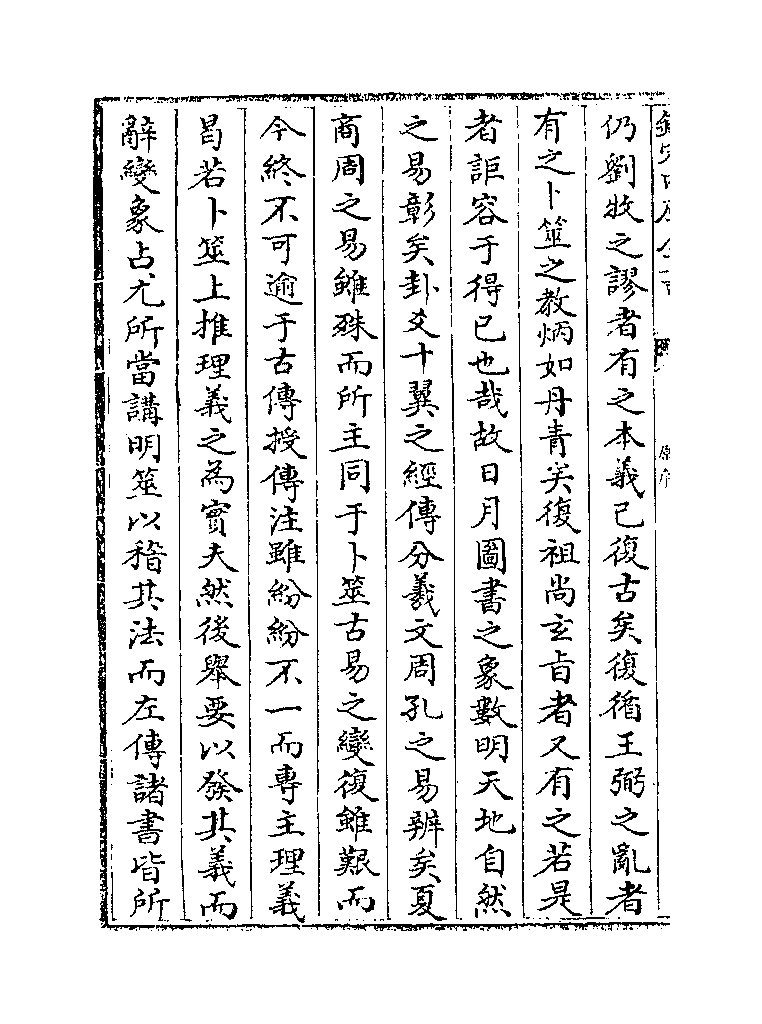 仍劉牧之謬者有之本義已復古矣復循王弼之亂者
有之卜筮之教炳如丹青矣復祖尚玄旨者又有之若是
者詎容于得已也哉故日月圖書之象數明天地自然
之易彰矣卦爻十翼之經傳分羲文周孔之易辨矣夏
商周之易雖殊而所主同于卜筮古易之變復雖艱而
今終不可逾于古傳授傳注雖紛紛不一而專主理義
曷若卜筮上推理義之為實夫然後舉要以發其義而
辭變象占尤所當講明筮以稽其法而左傳諸書皆所